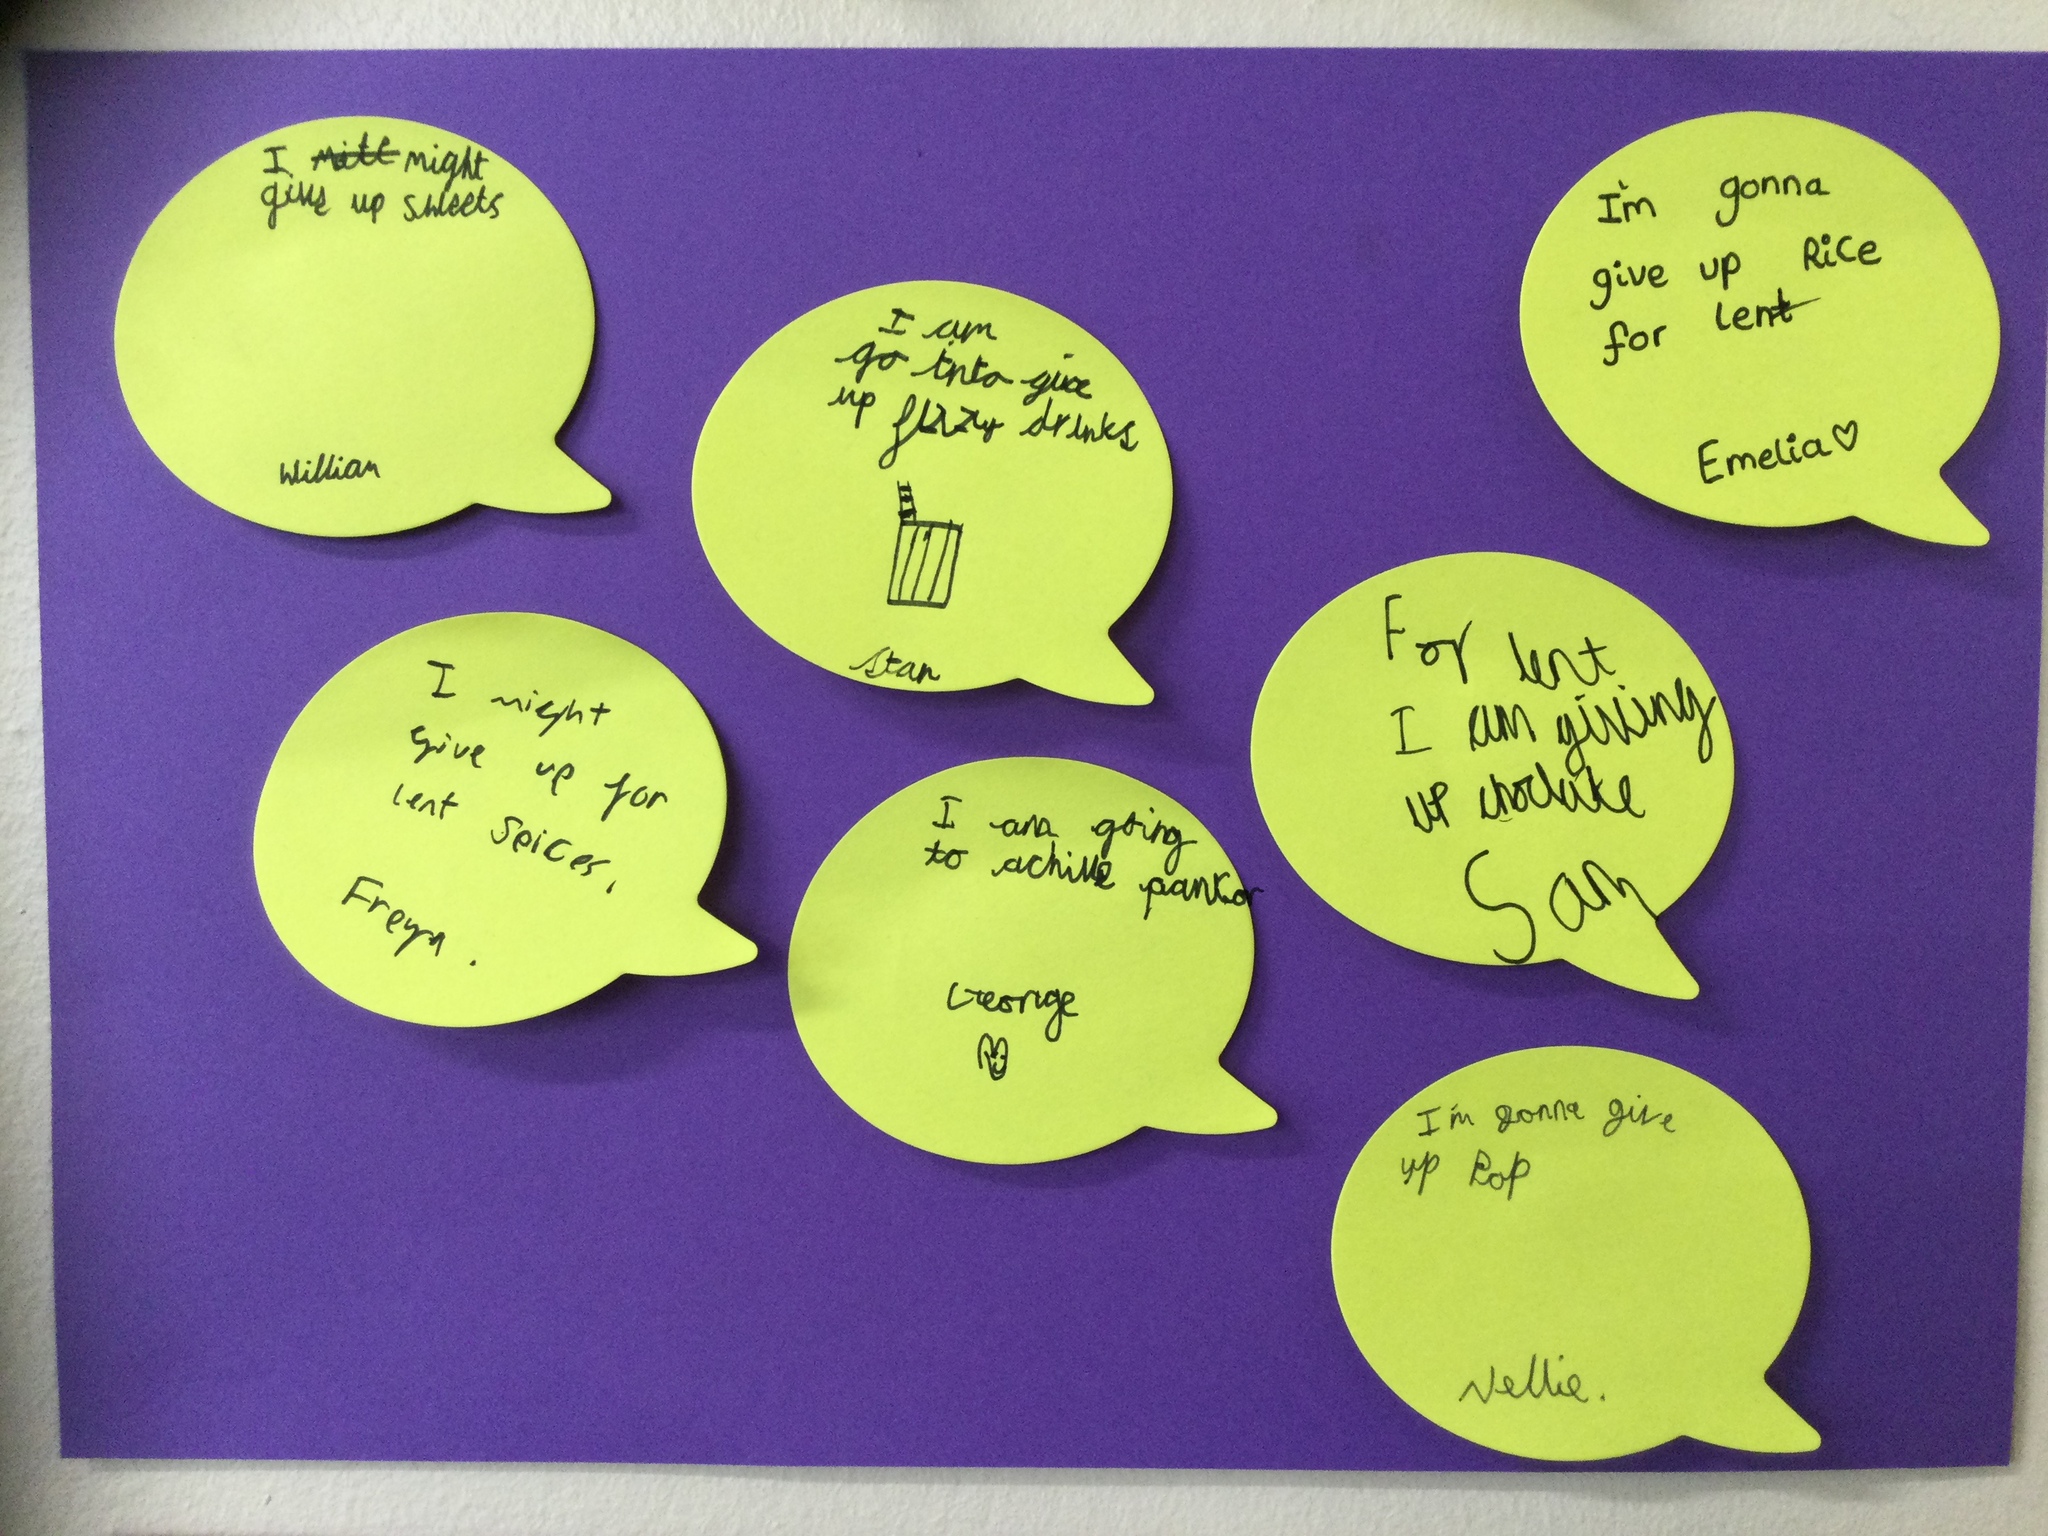 I might
give up sweets
William
I am
go tinto give
up fizzy drinks
Stan
I'm gonna
give up Rice
for lent
Emelia
I might
give up for
lent Spices.
Freya.
I am going
to achive
George
For lent
I am giving
up
Sam
I'm gonna give
up Pop
Nellie.